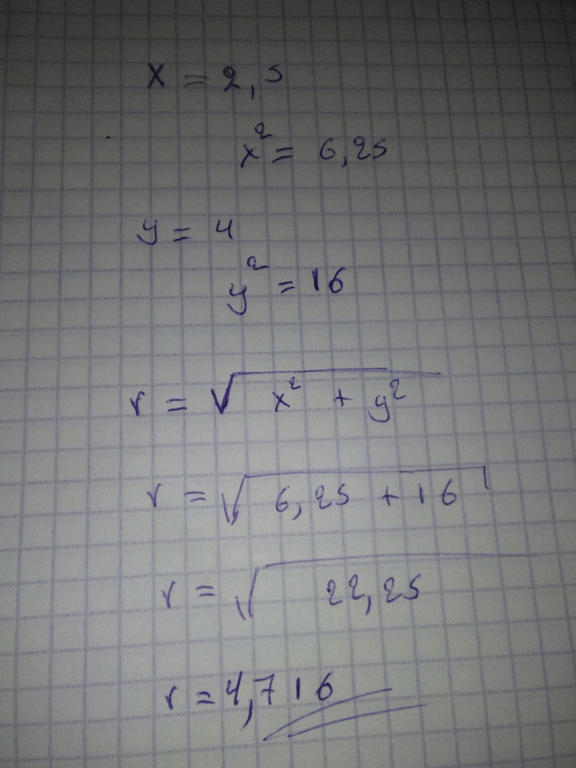 x = 2,5
x² = 6,25
y = 4
y² = 16
r = √x² + y²
r = √6,25 + 16
r = √22,25
r = 4,716